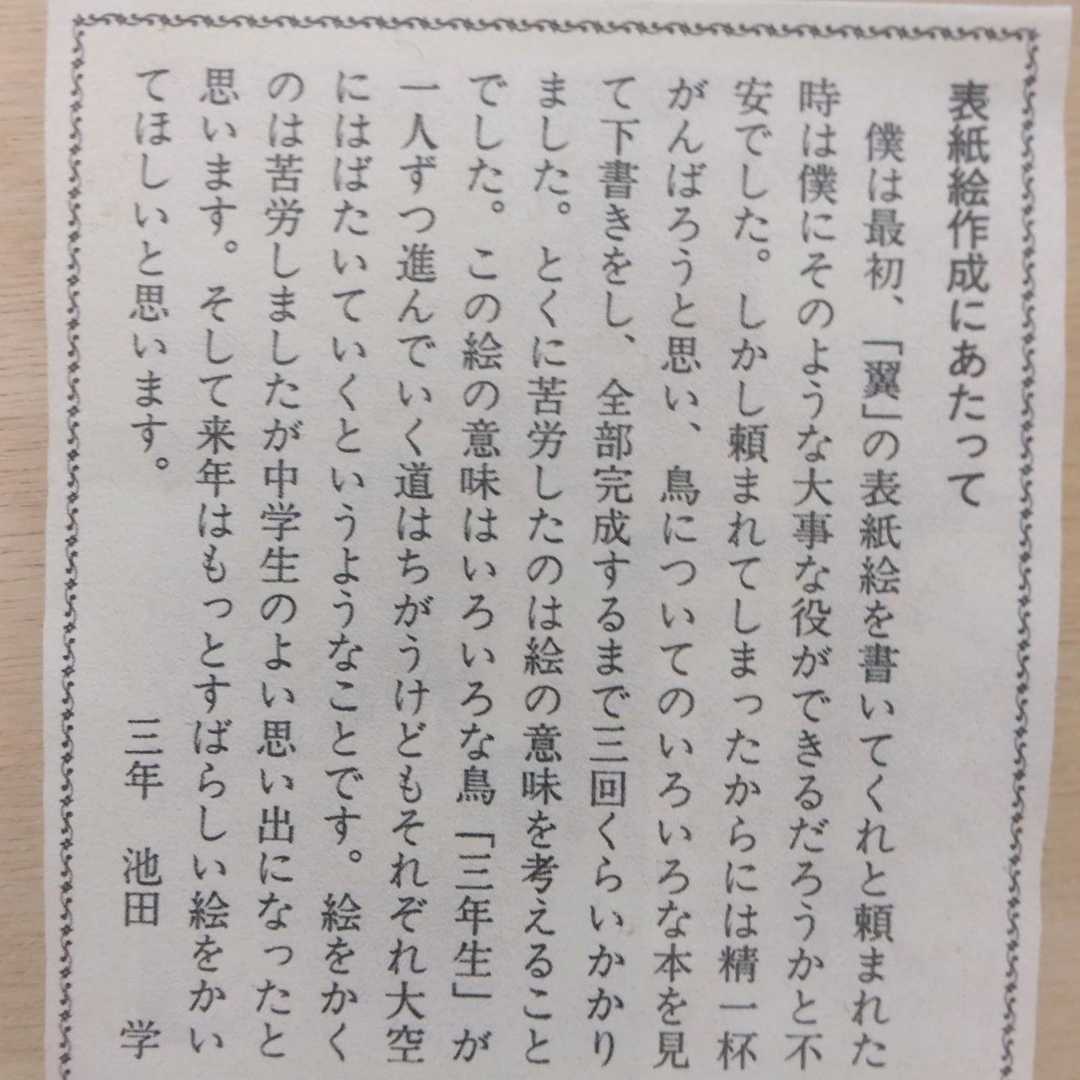 表紙絵作成にあたって
僕は最初、「翼」の表紙絵を書いてくれと頼まれた
時は僕にそのような大事な役ができるだろうかと不
安でした。しかし頼まれてしまったからには精一杯
がんばろうと思い、鳥についてのいろいろな本を見
て下書きをし、全部完成するまで三回くらいかかり
ました。とくに苦労したのは絵の意味を考えること
でした。この絵の意味はいろいろな鳥「三年生」が
一人ずつ進んでいく道はちがうけどもそれぞれ大空
にはばたいていくというようなことです。絵をかく
のは苦労しましたが中学生のよい思い出になったと
思います。そして来年はもっとすばらしい絵をかい
てほしいと思います。
三年 池田 学